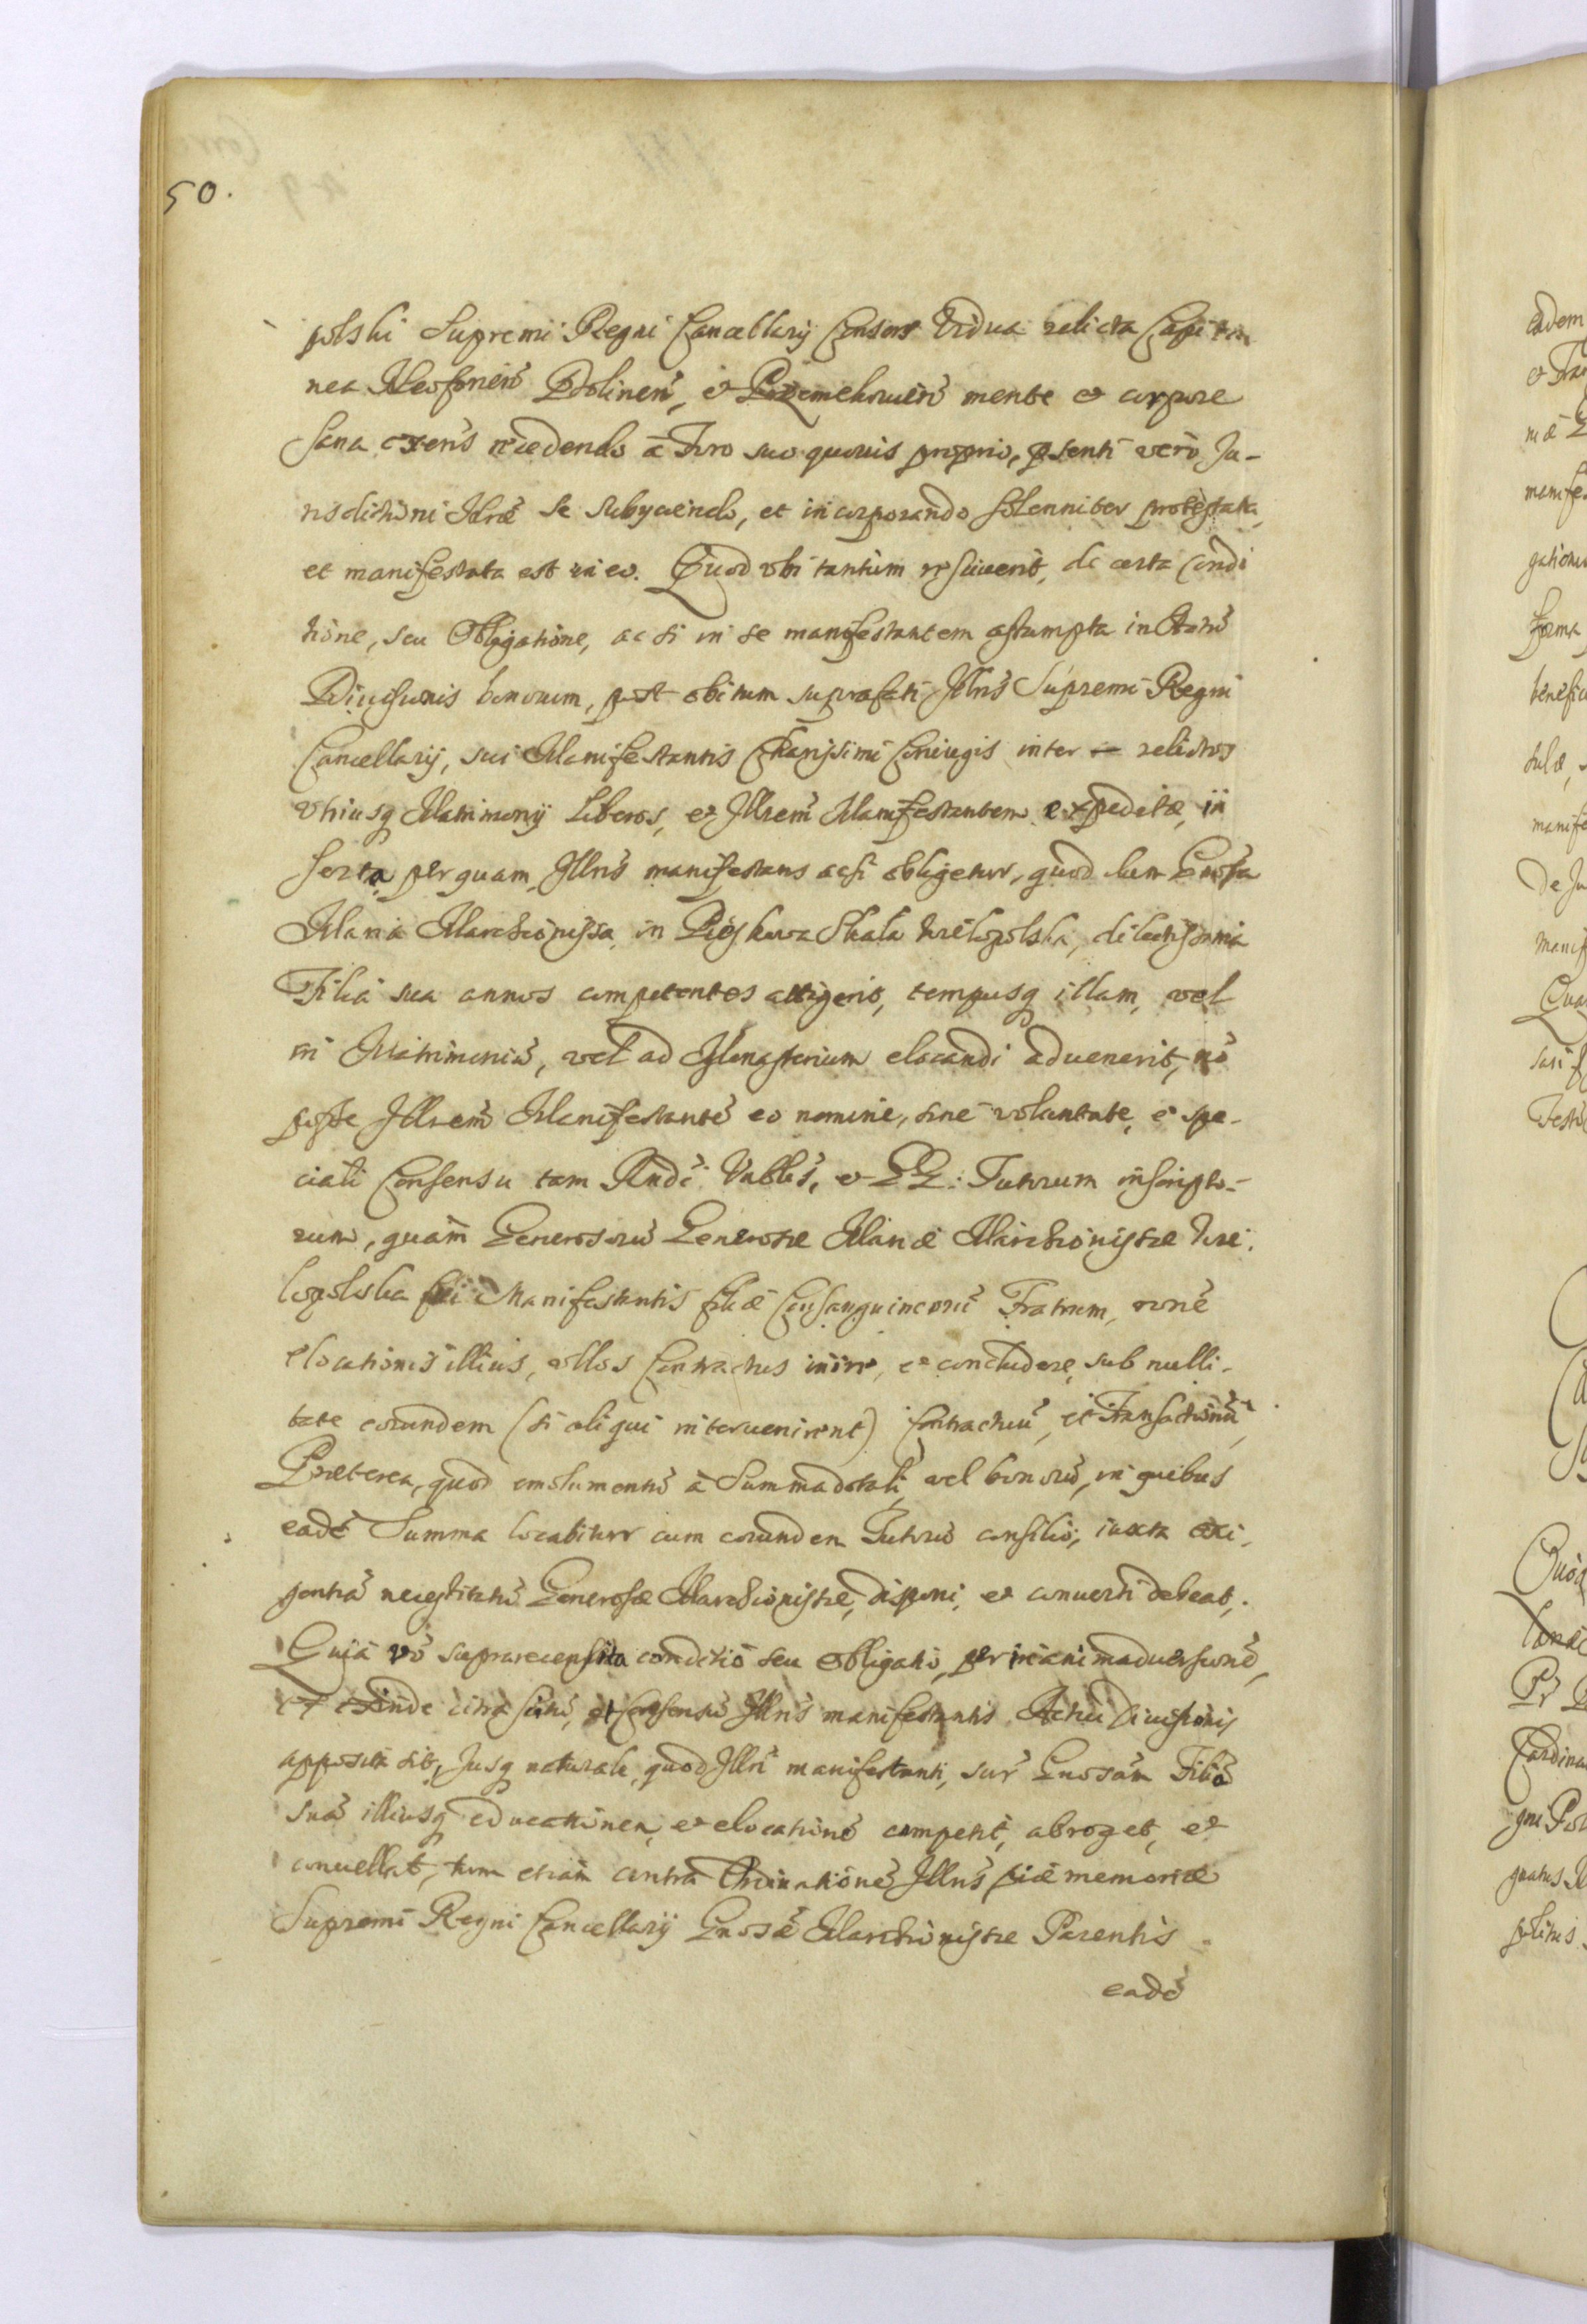 50.
polski Supremi Regni Cancellarij Consors Vidua relicta Capita
nea Neoforien̄ Bolinen̄, et mente et corpore
sana existens recedendo à Foro suo quovis proprio, p̄senti verò Ju-
risdictioni Ill̄ræ se subijciendo, et incorporando solenniter protestata,
et manifestata est in eo. Quod ubi tantum resciverit, de certa Condi
tione, seu Obligatione, ac si in se manifestantem assumpta in Actū
Divisionis bonorum, post obitum suprafati Ill̄ris Supremi Regni
Cancellarij, sui Manifestantis Charissimi Coniugis inter relictos
utriusq̢ Matrimonij Liberos, et Ill̄rem Manifestantem expeditæ, in
serta per quam Ill̄ris manifestans acsi obligetur, quod dum Gn̄osa
Maria Marchionissa in Pieskowa Skala Wielopolska, dilectissima
Filia sua annos competentes attigerit, tempusq̢ illam, vel
in Matrimoniū, vel ad Monasterium elocandi advenerit, nō
posse Ill̄rem Manifestantē eo nomine, sine voluntate, et spe-
ciali Consensu tam Rn̄di. Vnblis, et GG: Tutorum inscripto-
rum, quàm Generosorū Generosæ Mariæ Marchionissæ Wie-
lopolska sui Manifestantis filiæ Consanguineorū Fratrum, rōne
elocationis illius, ullos Contractus inire, et concludere, sub nulli-
tate eorundem (si aliqui intervenirent) Contractuū, et Transactionū,
Præterea, quod emolumentū à Summa dotali, vel bonorū, in quibus
eadē Summa locabitur cum eorundem Tutorū consilio, iuxta exi-
gentiā necessitatū Generosæ Marchionissæ, disponi, et converti debeat.
Quia vō suprarecensita conditio seu obligatio, per inanimadversionē,
et exinde citra scitū, et Consensū Ill̄ris manifestantis Actui Divisionis
apposita sit, Jusq̢ naturale, quod Ill̄ri manifestanti, sup̄ Gn̄osam Filiā
suā illiusq̢ educationem, et elocationē competit, abroget, et
convellat, tum etiam contra Ordinationē Ill̄ris piæ memoriæ
Supremi Regni Cancellarij Gn̄osæ Marchionissæ Parentis
eadē